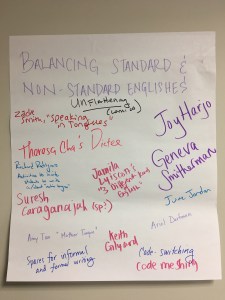 BALANCING STANDARD &
NON-STANDARD ENGLISHES
Unflattening
Zadie
Smith, "Speaking
in Tongues"
Theresa Cha's Dictee
Joy Harjo
Geneva
Smitherman
Richard Rodriguez
Jamila
Lyiscott's
"3 Different
English"
Suresh
Canagarajah (sp?)
June Jordan
Amy Tan "Mother Tongue"
Ariel Dorfman
Keith
Gilyard
Spaces for informal
and formal writing
Code-switching
Code meshing